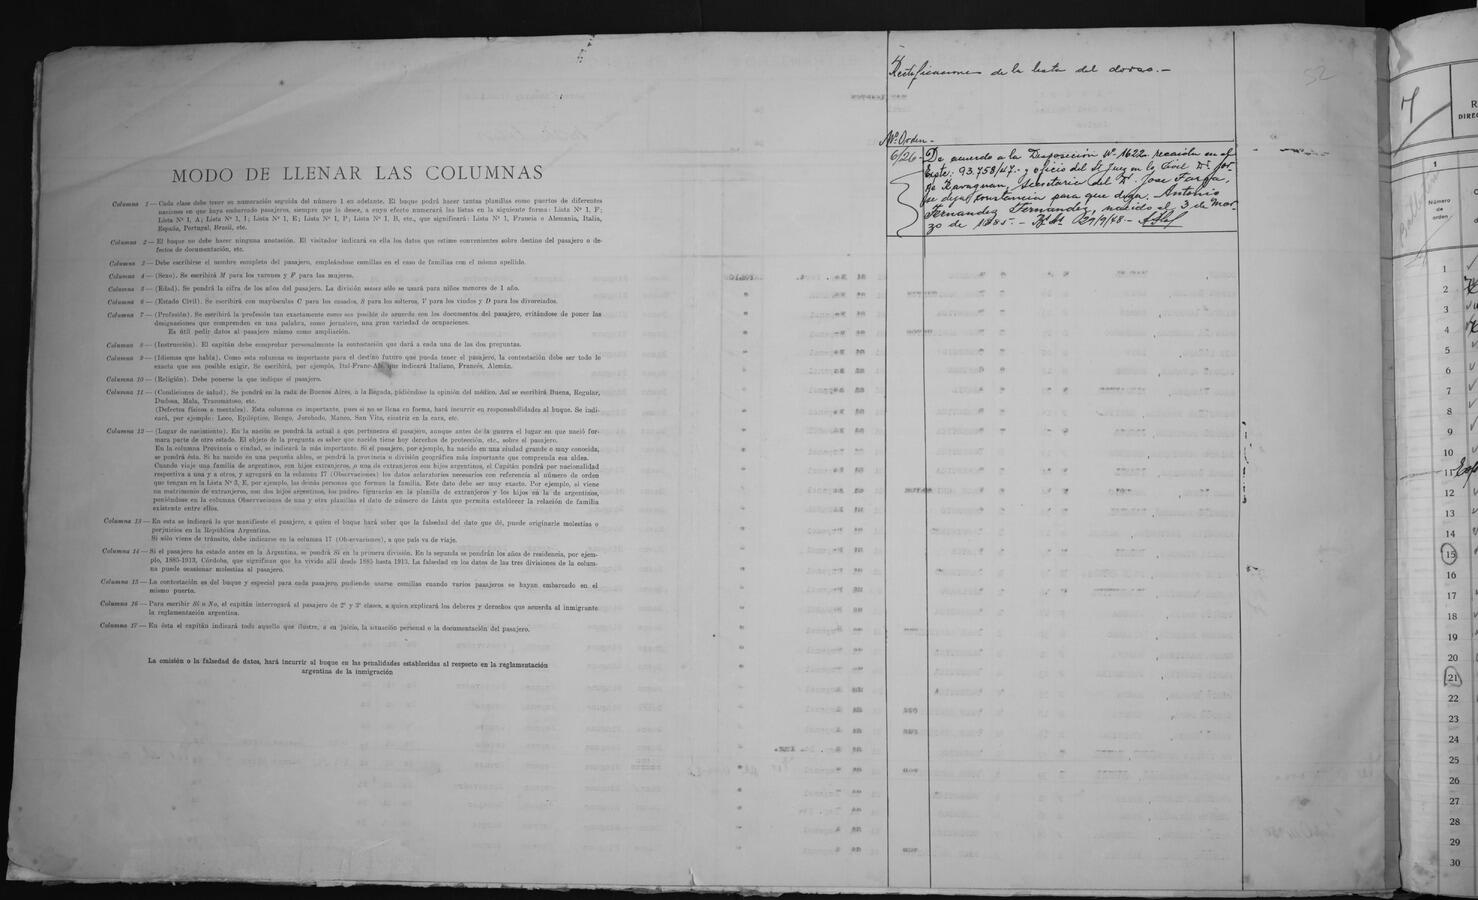 MODO DE LLENAR LAS COLUMNAS
Columna 1 — Cada clase debe tener su numeración seguida del número 1 en adelante. El buque podrá hacer tantas planillas como puertos de diferentes
naciones en que haya embarcado pasajeros, siempre que lo desee, a cuyo efecto numerará las listas en la siguiente forma: Lista Nº 1, F;
Lista Nº 1, A; Lista Nº 1, I; Lista Nº 1, E; Lista Nº 1, P; Lista Nº 1, B, etc., que significará: Lista Nº 1, Francia o Alemania, Italia,
España, Portugal, Brasil, etc.
Columna 2 — El buque no debe hacer ninguna anotación. El visitador indicará en ella los datos que estime convenientes sobre destino del pasajero o de-
fectos de documentación, etc.
Columna 3 — Debe escribirse el nombre completo del pasajero, empleándose comillas en el caso de familias con el mismo apellido.
Columna 4 — (Sexo). Se escribirá M para los varones y F para las mujeres.
Columna 5 — (Edad). Se pondrá la cifra de los años del pasajero. La división meses sólo se usará para niños menores de 1 año.
Columna 6 — (Estado Civil). Se escribirá con mayúsculas C para los casados, S para los solteros, V para los viudos y D para los divorciados.
Columna 7 — (Profesión). Se escribirá la profesión tan exactamente como sea posible de acuerdo con los documentos del pasajero, evitándose de poner las
designaciones que comprenden en una palabra, como jornalero, una gran variedad de ocupaciones.
Es útil pedir datos al pasajero mismo como ampliación.
Columna 8 — (Instrucción). El capitán debe comprobar personalmente la contestación que dará a cada una de las dos preguntas.
Columna 9 — (Idiomas que habla). Como esta columna es importante para el destino futuro que pueda tener el pasajero, la contestación debe ser todo lo
exacta que sea posible exigir. Se escribirá, por ejemplo, Ital-Franc-Al, que indicará Italiano, Francés, Alemán.
Columna 10 — (Religión). Debe ponerse la que indique el pasajero.
Columna 11 — (Condiciones de salud). Se pondrá en la rada de Buenos Aires, a la llegada, pidiéndose la opinión del médico. Así se escribirá Buena, Regular,
Dudosa, Mala, Tracomatoso, etc.
(Defectos físicos o mentales). Esta columna es importante, pues si no se llena en forma, hará incurrir en responsabilidades al buque. Se indi-
cará, por ejemplo: Loco, Epiléptico, Rengo, Jorobado, Manco, San Vito, cicatriz en la cara, etc.
Columna 12 — (Lugar de nacimiento). En la nación se pondrá la actual a que pertenezca el pasajero, aunque antes de la guerra el lugar en que nació for-
mara parte de otro estado. El objeto de la pregunta es saber que nación tiene hoy derechos de protección, etc., sobre el pasajero.
En la columna Provincia o ciudad, se indicará la más importante. Si el pasajero, por ejemplo, ha nacido en una ciudad grande o muy conocida,
se pondrá ésta. Si ha nacido en una pequeña aldea, se pondrá la provincia o división geográfica más importante que comprenda esa aldea.
Cuando viaje una familia de argentinos, con hijos extranjeros, o una de extranjeros con hijos argentinos, el Capitán pondrá por nacionalidad
respectiva a una y a otros, y agregará en la columna 17 (Observaciones) los datos aclaratorios necesarios con referencia al número de orden
que tengan en la Lista Nº 3, E, por ejemplo, las demás personas que forman la familia. Este dato debe ser muy exacto. Por ejemplo, si viene
un matrimonio de extranjeros, con dos hijos argentinos, los padres figurarán en la planilla de extranjeros y los hijos en la de argentinos,
poniéndose en la columna Observaciones de una y otra planillas el dato de número de Lista que permita establecer la relación de familia
existente entre ellos.
Columna 13 — En esta se indicará la que manifieste el pasajero, a quien el buque hará saber que la falsedad del dato que dé, puede originarle molestias o
perjuicios en la República Argentina.
Si sólo viene de tránsito, debe indicarse en la columna 17 (Observaciones), a que país va de viaje.
Columna 14 — Si el pasajero ha estado antes en la Argentina, se pondrá Sí en la primera división. En la segunda se pondrán los años de residencia, por ejem-
plo, 1885-1913, Córdoba, que significan que ha vivido allí desde 1885 hasta 1913. La falsedad en los datos de las tres divisiones de la colum-
na puede ocasionar molestias al pasajero.
Columna 15 — La contestación es del buque y especial para cada pasajero, pudiendo usarse comillas cuando varios pasajeros se hayan embarcado en el
mismo puerto.
Columna 16 — Para escribir Sí o No, el capitán interrogará al pasajero de 2ª y 3ª clases, a quien explicará los deberes y derechos que acuerda al inmigrante
la reglamentación argentina.
Columna 17 — En ésta el capitán indicará todo aquello que ilustre, a su juicio, la situación personal o la documentación del pasajero.
La omisión o la falsedad de datos, hará incurrir al buque en las penalidades establecidas al respecto en la reglamentación
argentina de la inmigración
Rectificaciones de la lista del dorso.—
52
Nº Orden.
6/26 - De acuerdo a la Disposición Nº 1622 recaida en el
Expte. 93.758/47 - y oficio del Sr Juez en lo Civil Dr. Jor-
ge secretaria del Dr. Jose Farga,
se deja constancia para que diga. - Antonio
Fernandez Fernandez, nacido el 3 de Mar-
zo de 1885 - Bs As 21/9/48 -
7
R
DIREC
1
Número
de
orden
1
2
3
4
5
6
7
8
9
10
11
12
13
14
15
16
17
18
19
20
21
22
23
24
25
26
27
28
29
30